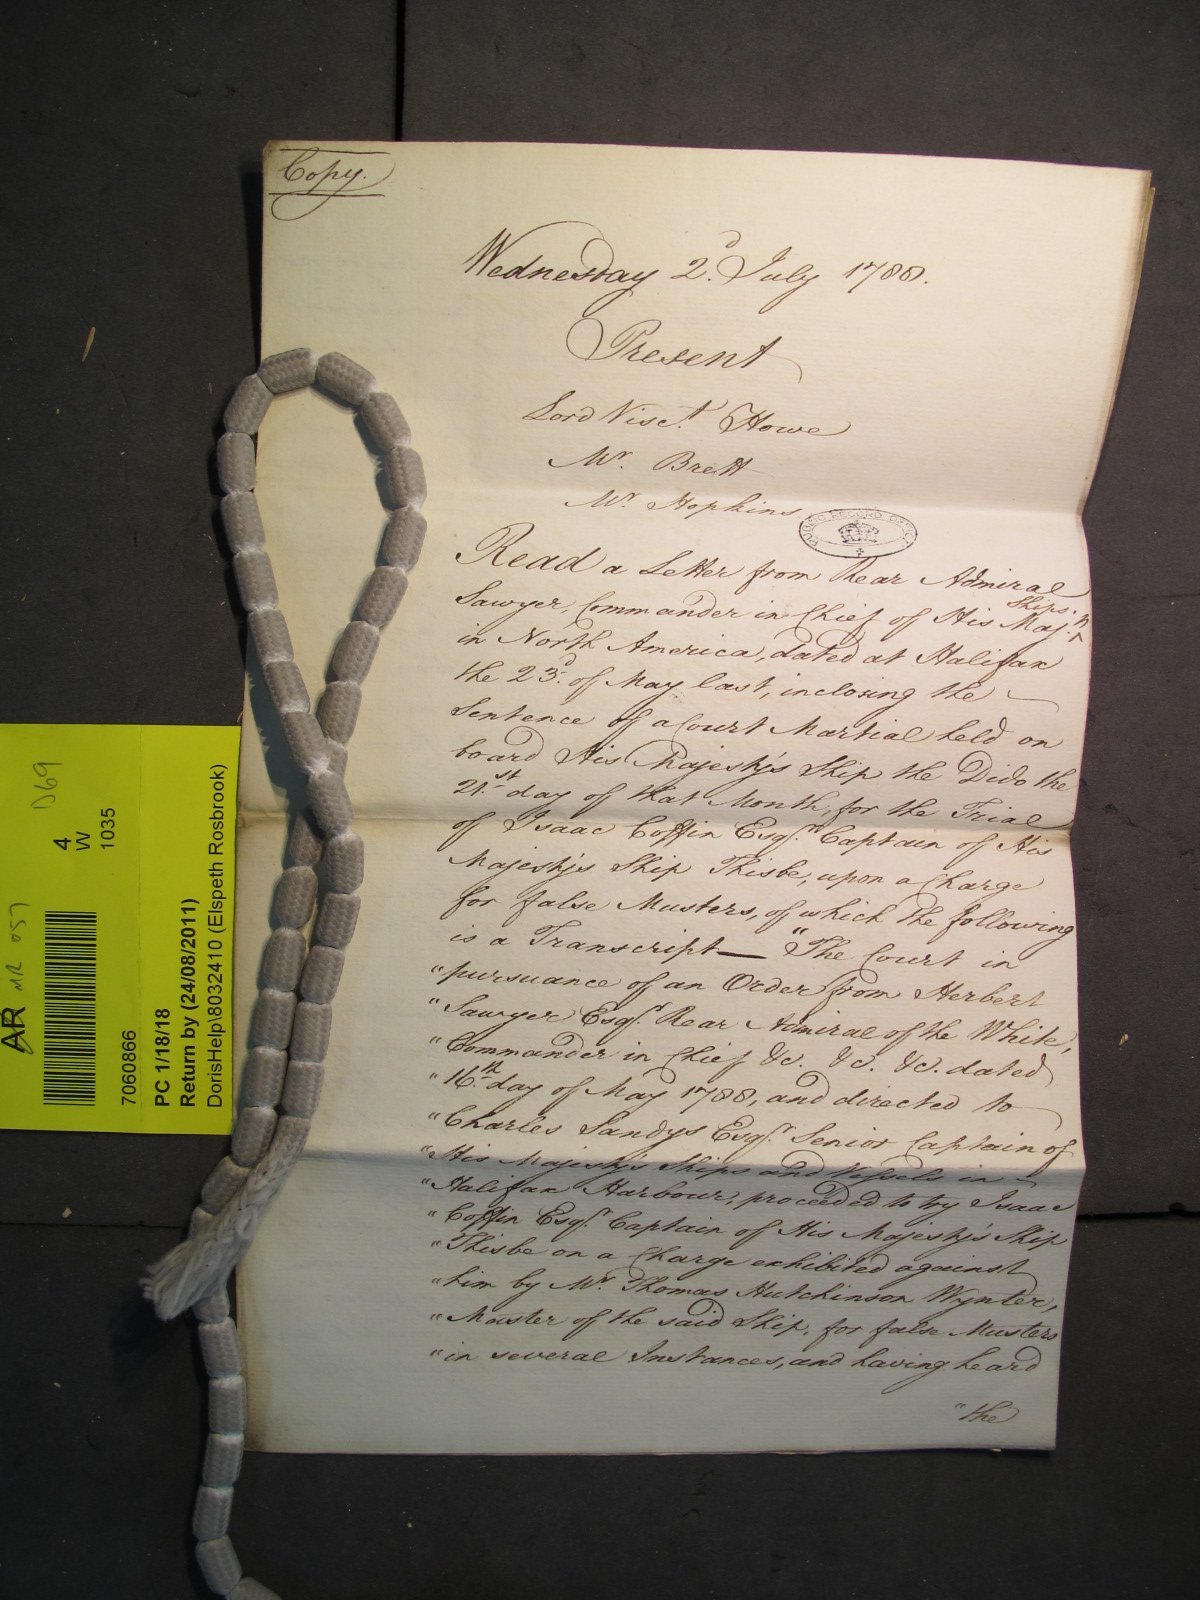 Copy.
Wednesday 2.d July 1788.
Present
Lord Visc.t Howe
Mr. Brett
Mr. Hopkins
PUBLIC RECORD OFFICE
Read a Letter from Rear Admiral
Sawyer, Commander in Chief of His Maj.s Ships
in North America, dated at Halifax
the 23.d of May last, inclosing the
Sentence of a Court Martial held on
board His Majesty's Ship the Dido the
21.st day of that Month, for the Trial
of Isaac Coffin Esq.r Captain of His
Majesty's Ship Thisbe, upon a Charge
for false Musters, of which the following
is a Transcript — "The Court in
"pursuance of an Order from Herbert
"Sawyer Esq.r Rear Admiral of the White,
"Commander in Chief &c. &c. &c. dated
"16.th day of May 1788, and directed to
"Charles Sandys Esq.r Senior Captain of
"His Majesty's Ships and Vessels in
"Halifax Harbour, proceeded to try Isaac
"Coffin Esq.r Captain of His Majesty's Ship
"Thisbe on a Charge exhibited against
"him by Mr. Thomas Hutchinson Wynter,
"Master of the said Ship, for false Musters
"in several Instances, and having heard
"the
AR MR 057 D69
4
W
1035
7060866
PC 1/18/18
Return by (24/08/2011)
DorisHelp\8032410 (Elspeth Rosbrook)